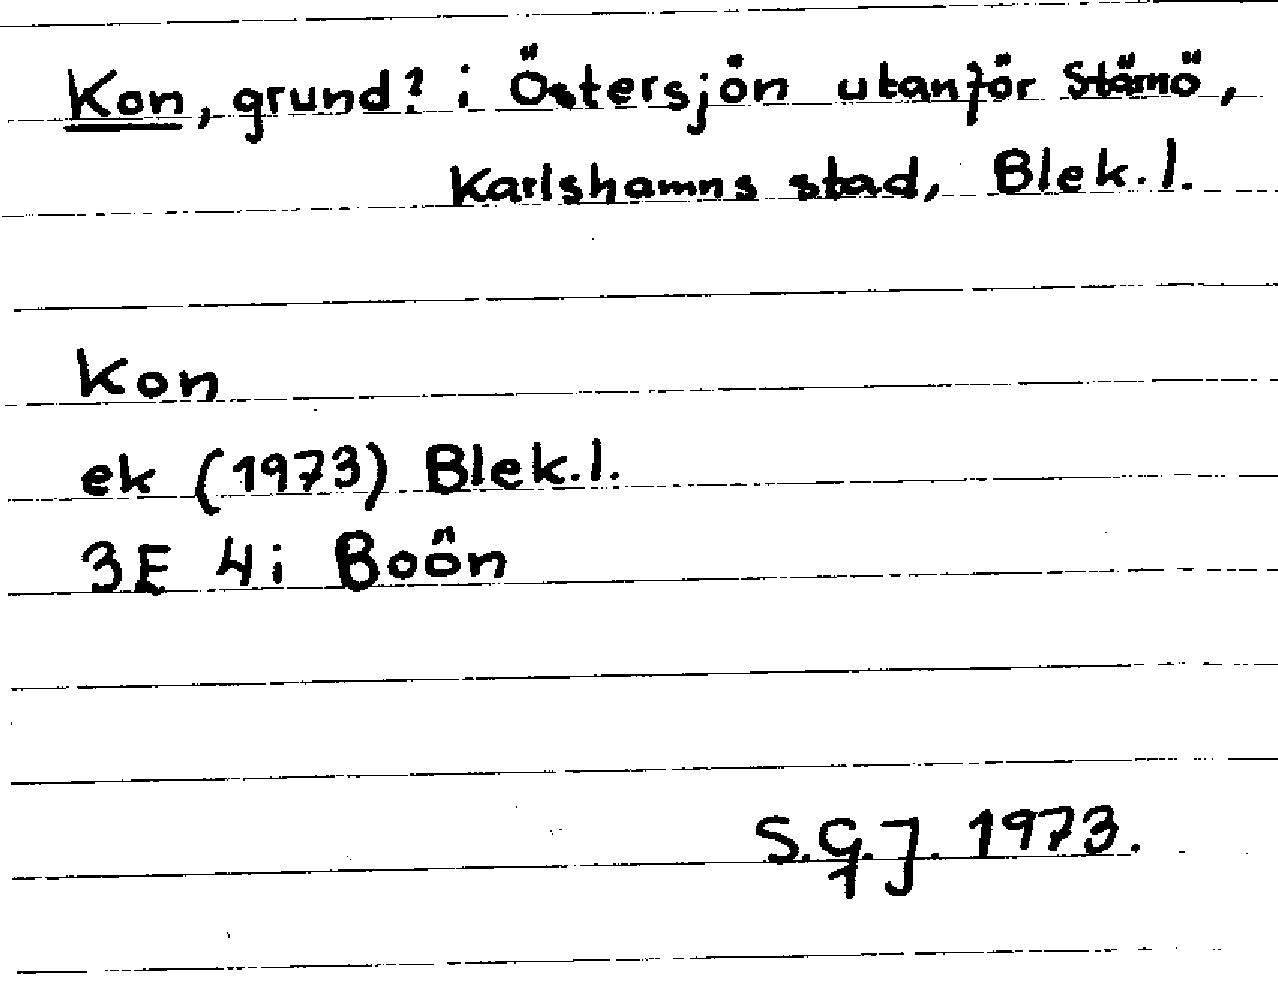 Kon, grund? i Östersjön utanför Stärnö,
Karlshamns stad, Blek.l.
Kon
ek (1973) Blek.l.
3E 4i Boön
S.G.J. 1973.